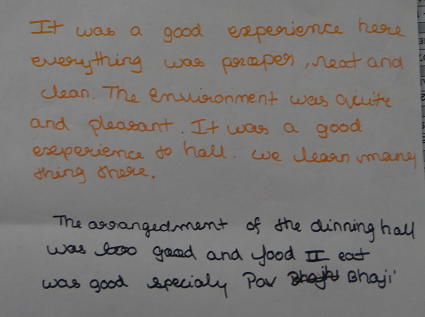 It was a good experience here
everything was proper, neat and
clean. The Environment was quite
and pleasant. It was a good
experience to hall. we learn many
thing there.
The arrangedment of the dinning hall
was too good and food II eat
was good specialy Pav Bhaji Bhaji